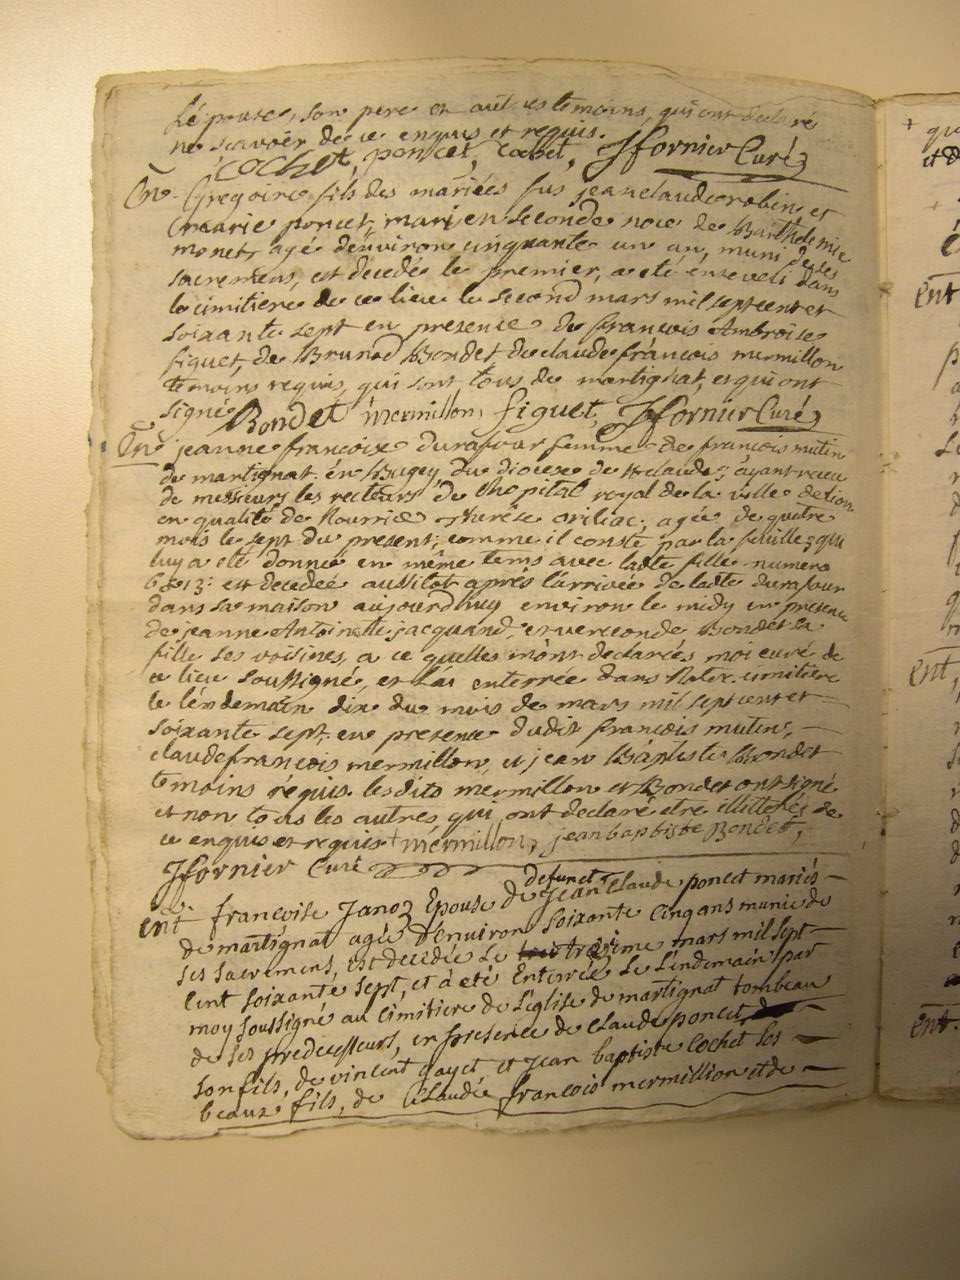 L'épouse, son pere et autres temoins, qui ont declaré
ne scavoir de ce enquis et requis.
Cochet, poncet, Cochet, JfFornier Curé
En. Gregoire fils des mariées fus jeanclauderobin, et
marie poncet, mari en seconde noce de Barthelemie
monet, agé d'enviror cinquante un an, muni de ses
sacremens, est decedé le premier, a eté enseveli dans
le cimitiere de ce lieu le second mars mil septcent et
soixante sept en presence de françois Ambroise
figuet, de Bruno Bondet, de claudefrançois mermillon
temoins requis, qui sont tous de martignat, et qui ont
signé Bondet mermillon, figuet, JfFornier Curé
En jeanne françoise durafour femme de françois mutin
de martignat en Bugey du diocese de st claude, ayant receu
de messieurs les recteurs de l'hopital royal de la ville de lion
en qualité de Nourrice Therese, agée de quatre
mois le sept du present, comme il conste par la feuille qui
luy a eté donnée en même tems avec ladte fille numero
est decedée aussitot après l'arrivée de ladte durafour
dans sa maison aujourdhuy environ le midy en presence
de jeanne Antoinette jacquand, et Bondet sa
fille ses voisines, a ce quelles m'ont declarées moi curé de
ce lieu soussigné, et l'ai enterrée dans Notre cimitiere
le lendemain dix du mois de mars mil septcent et
soixante sept, en presence dudit françois mutin,
claudefrançois mermillon, et jean Baptiste Bondet
temoins requis. lesdits mermillon et Bondet ont signé
et non tous les autres qui ont declaré etre illitterés de
ce enquis et requis mermillon, jean baptiste Bondet,
JfFornier Curé
defunct
ent francoise Janoz Epouse de Jean Claude poncet mariés
de martignat agée d'environ soixante Cinq ans munie de
ses sacremens, est decedée Le treisieme mars mil sept
Cent soixante sept, et à eté Enterrée Le Lendemain par
moy soussigné au Cimitiere de L'eglise de martignat tombeau
de ses predecesseurs, en presence de Claude poncet,
son fils, de vincent gayet, et Jean baptiste Cochet ses
beaux fils, de Claude françois mermillion et de
+ qu
et d
ent
ent,
ent.